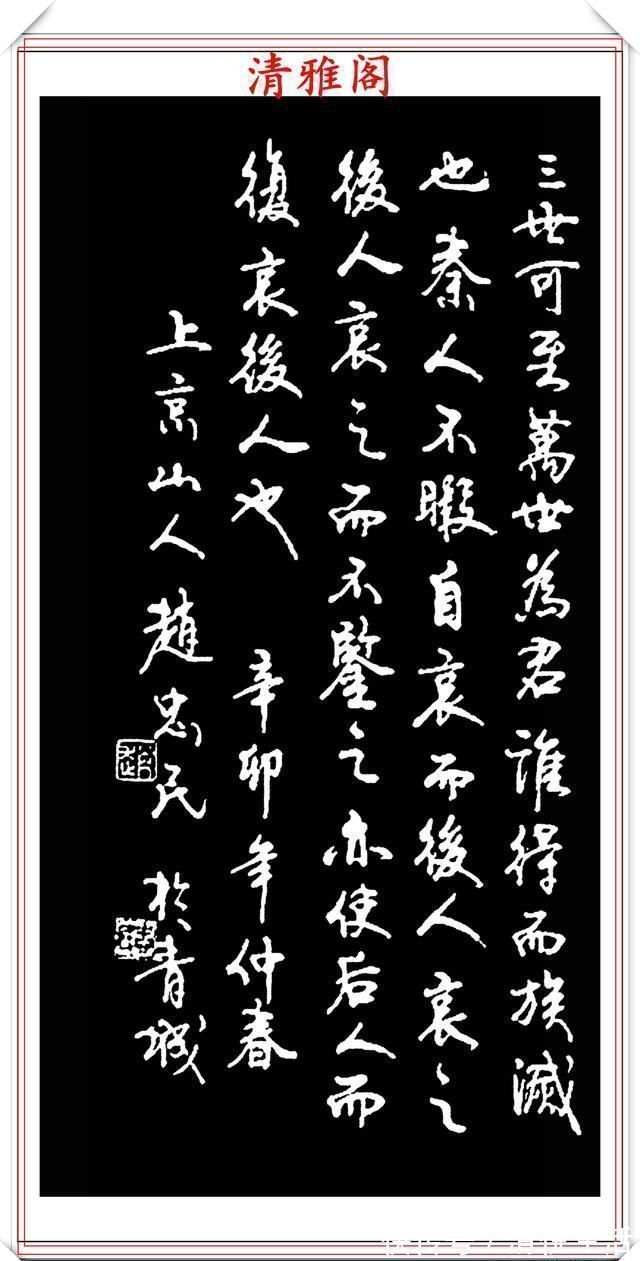 清雅阁
三世可至萬世為君誰得而族滅
也秦人不暇自哀而後人哀之
後人哀之而不鑒之亦使后人而
復哀後人也 辛卯年仲春
上京山人趙忠民 於青城